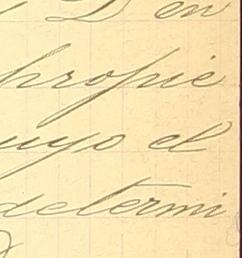 D en
propie
uyo el
determi